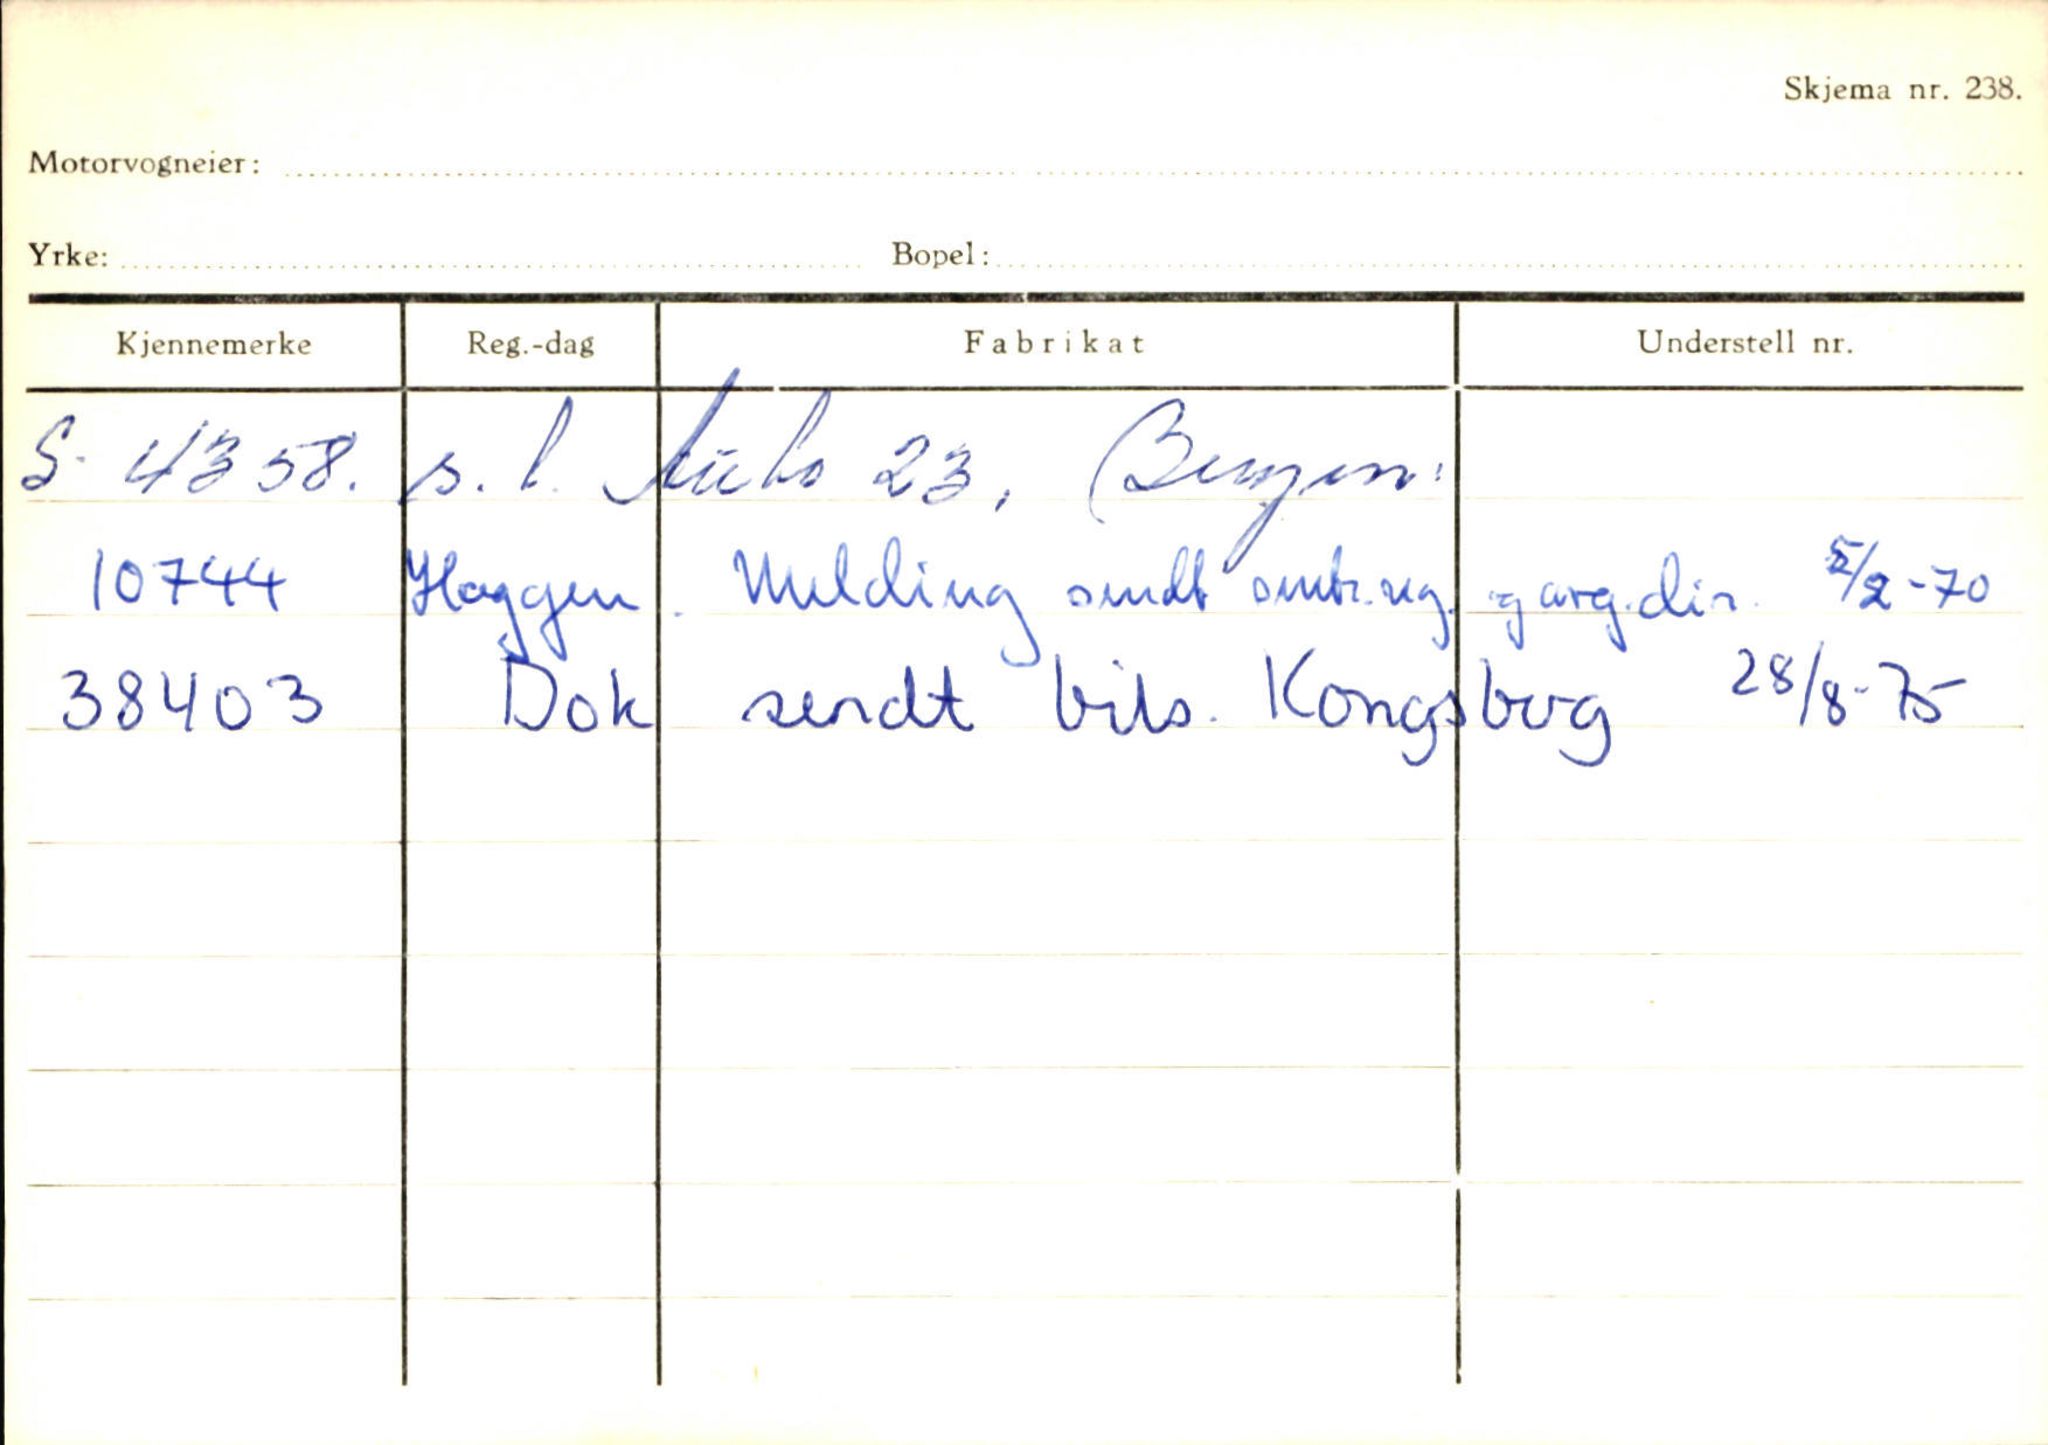 Skjema nr. 238.
Motorvogneier:
Yrke: Bopel:
Kjennemerke Reg.-dag Fabrikat Understell nr.
S- 4358. s. l. 23, Bergen.
10744 Haggen. Melding sendt sentr.reg. og arg.dir. 5/2-70
38403 Dok sendt bils. Kongsberg 28/8-75